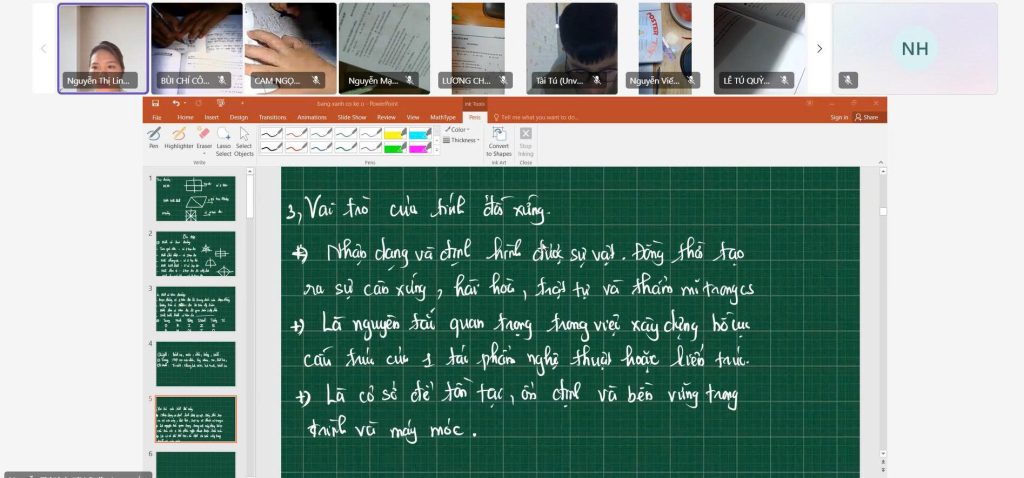 Nguyễn Thị Lin...
BÙI CHÍ CÔ...
CAM NGỌ...
Nguyễn Mạ...
LƯƠNG CH...
Tài Tú (Unv...
Nguyễn Viế...
LÊ TÚ QUỲ...
NH
bang xanh co ke o - PowerPoint
Ink Tools
File Home Insert Design Transitions Animations Slide Show Review View MathType Pens Tell me what you want to do... Sign in Share
Pen Highlighter Eraser Lasso Select Select Objects
Color
Thickness
Convert to Shapes
Stop Inking
Write Pens Ink Art Close
1
2
3
4
5
6
3, Vai trò của tính đối xứng.
+) Nhận dạng và định hình được sự vật. Đồng thờ tạo
ra sự cân xứng, hài hòa, trật tự và thẩm mĩ trong cs
+) Là nguyên tắc quan trọng trong việc xây dựng bố cục
cấu trúc của 1 tác phẩm nghệ thuật hoặc kiến trúc.
+) Là cơ sở để tồn tạc, ổn định và bền vững trong
trình và máy móc.